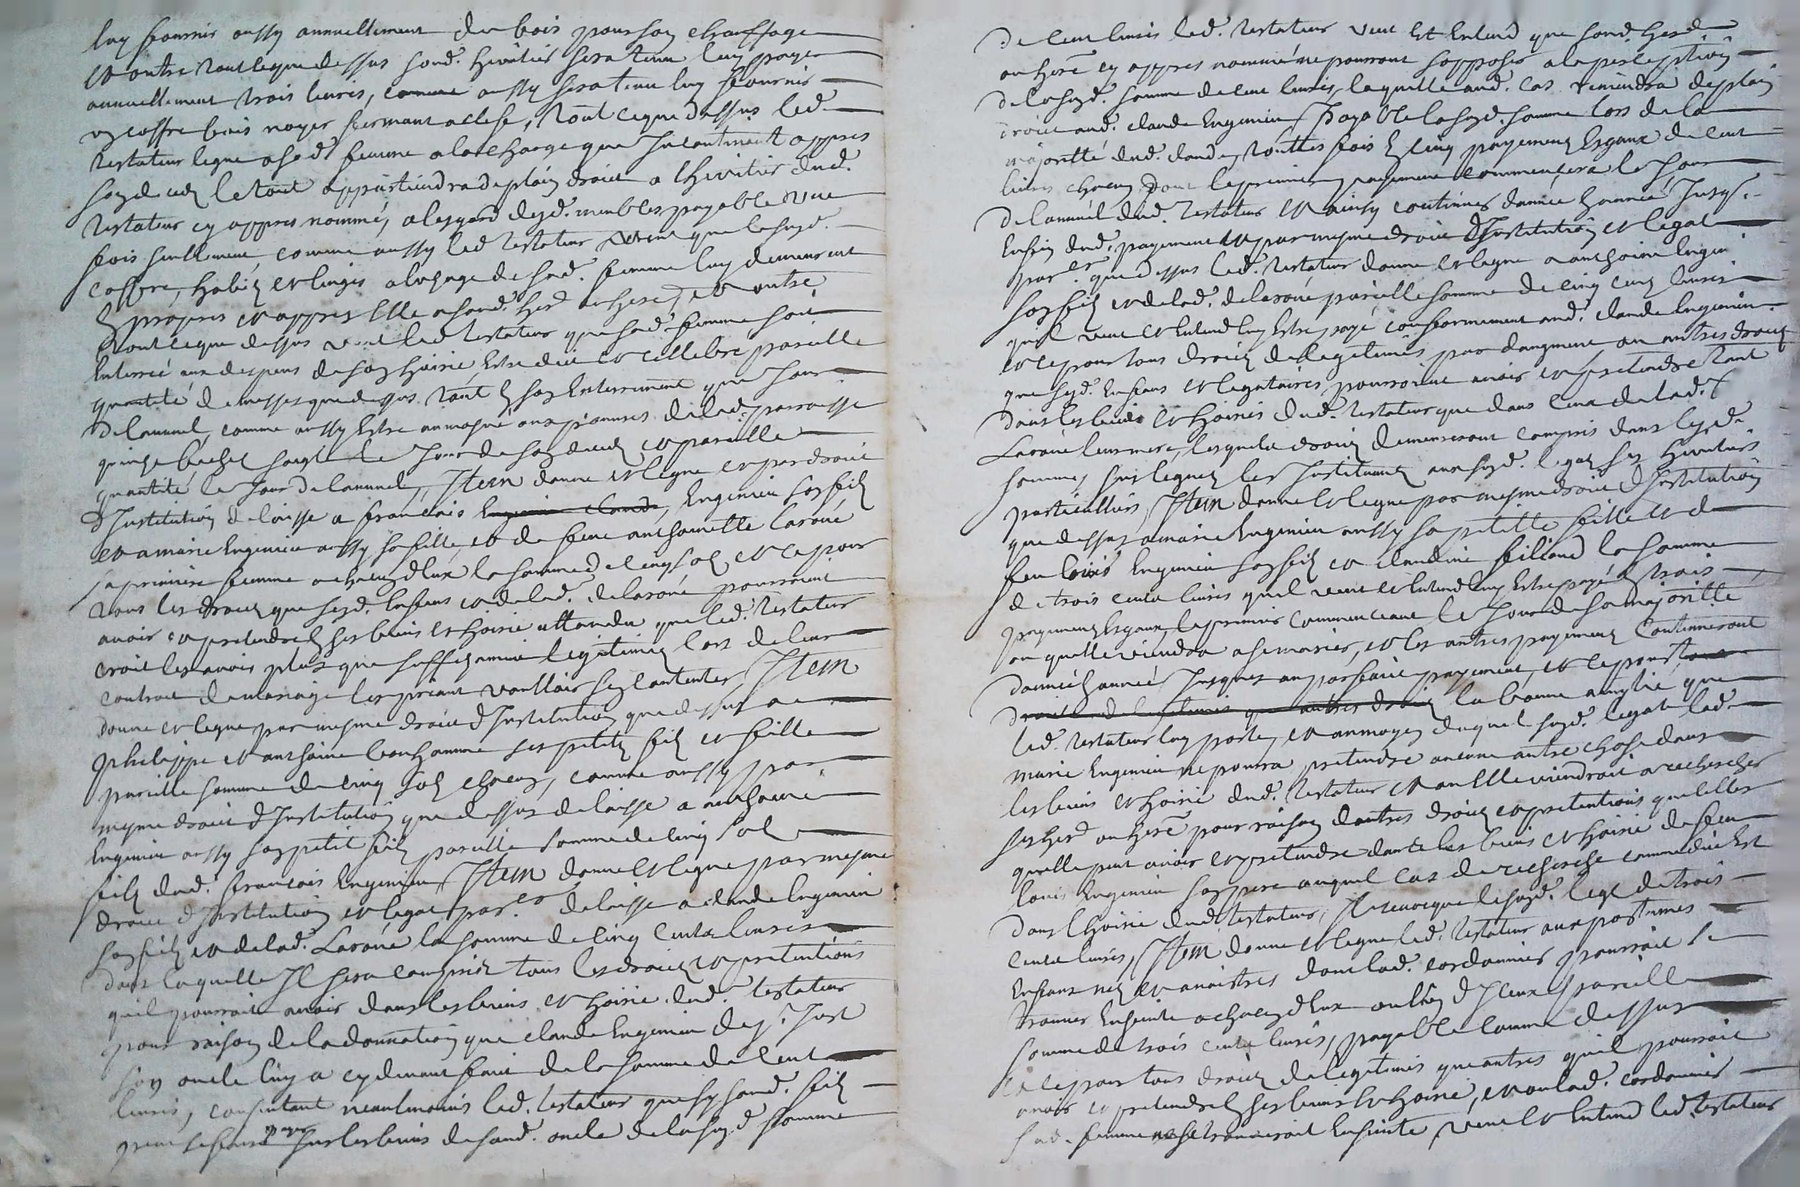 luy fournir aussy annuellement du bois pour son chauffage
et outre tout ce que dessus sond. heritier sera tenu luy payer
annuellement trois livres, comme aussy sera tenu luy fournir
un coffre bois noyer fermant a clef, tout ce que dessus led.
testateur legue a sad. femme a la charge que incontinent appres
son deces le tout appartiendra de plain droict a lheritier dud.
testateur cy appres nommé, a lesgard desd. meubles payable une
fois seullement comme aussy led testateur veut que lesusd.
coffre, habitz et linges a lusage de sad. femme luy demeurent
en propres et appres elle a sond. her ou here, et outre
tout ce que dessus veut led testateur que sad. femme soit
enterrée aux despens de son hoirie estre dict et cellebré pareille
quantité de messes que dessus tant a son enterrement que jour
de lannuel, comme aussy estre aumosné aux pauvres de lad. parroisse
quinze bichet seigle le jour de son deces et pareille
quantité le jour de lannuel, Item donne et legue et par droict
dInstitution delaisse a francois Enjenin son filz
et a marie Enjenin aussy sa fille, et de feue anthoinette Laroue
sa premiere femme a chacun deux la somme de cinq solz et ce pour
tous les droictz que sesd. enfans et de lad. delaroue pourroient
avoir et pretendre en ses biens et hoirie attandu que led. testateur
croit les avoir plus que suffizament legitimez lors de leur
contract de mariage les priant voulloir sen contenter, Item
donne et legue par mesme droict dInstitution que dessus a
philippe et anthoine bonhomme ses petitz filz et fille
pareille somme de cinq solz chacun, comme aussy par
mesme droict dInstitution que dessus delaisse a anthoine
Enjenin aussy son petit filz pareille somme de cinq sol
filz dud. francois Enjenin, Item donne et legue par mesme
droict dInstitution et legat par.er delaisse a claude Enjenin
son filz et de lad. Laroue la somme de cinq centz livres
dans laquelle Il sera comprins tous les droictz et pretentions
quil pourroit avoir dans les biens et hoirie dud. testateur
pour raison de la donnation que claude Enjenin de St. Just
son oncle luy a cy devant faict de la somme de cent
livres, consentant neantmoins led. testateur que sy sond. filz
payer sur les biens de sond. oncle de la susd somme
de cent livres led. testateur veut et entend que sond. her
ou here cy appres nommé ne pourront sopposer a la perception
de la susd. somme de cent livres, laquelle aud. cas viendra de plain
droict aud. claude Enjenin, payable la susd. somme lors de la
majoritté dud. claude, touttes fois en cinq payementz esgaux de cent
livres chacun dont le premier payement commencera le jour
de lannuel dud. testateur et ainsy continuer dannée a année jusq.
enfin dud. payement et par mesme droict dInstitution et legat
par.er que dessus led. testateur donne et legue a anthoine Enjenin
son filz et de lad. delaroue pareille somme de cinq centz livres
quil veut et entend luy estre payé conformement aud. claude Enjenin
et ce pour tous droictz de legitimes par daugment ou autres droictz
que sesd. enfans et legataires pourroient avoir et pretendre tant
dans les biens et hoiries dud. testateur que dans ceux de lad.
Laroue leur mere, lesquels droictz demeureront compris dans lesd.
sommes sur lequez les Instituant aux susd. legaz ses heritiers
particulliers, Item donne et legue par mesme droict dInstitution
que dessus a marie Enjenin aussy sa petitte fille et de
feu louis Enjenin son filz et claudine filliand la somme
de trois centz livres quil veut et entend luy estre payé en trois
payementz esgaux, le premier commenceant le jour de sa majoritté
ou quelle viendra a se marier, et les autres payementz continueront
dannée a année jusques au parfaict payement, et ce pour
droictz de legitimes que autres droictz la bonne amytié que
led. testateur luy porte, et au moyen duquel susd. legat lad.
marie Enjenin ne pourra pretendre aucune autre chose dans
les biens et hoirie dud. testateur et ou elle viendroit a rechercher
sesher ou here pour raison dautres droictz et pretentions quelles
quelle peut avoir et pretendre dans les biens et hoirie de feu
louis Enjenin son pere auquel cas de recherche comme dict est
dans lhoirie dud. testateur, Il revocque le susd. legz de trois
centz livres, Item donne et legue led. testateur aux postumes
enfans nez et a naistres dont lad. cordonnier pourroit se
trouver enceinte a chacun deux ou lun diceux pareille
somme de trois centz livres, payable comme dessus
et ce pour tous droictz de legitimes que autres quil pourroit
avoir et pretendre en ses biens et hoirie, et ou lad. cordonnier
sad. femme ne se trouveroit enceinte, veut et entend led. testateur